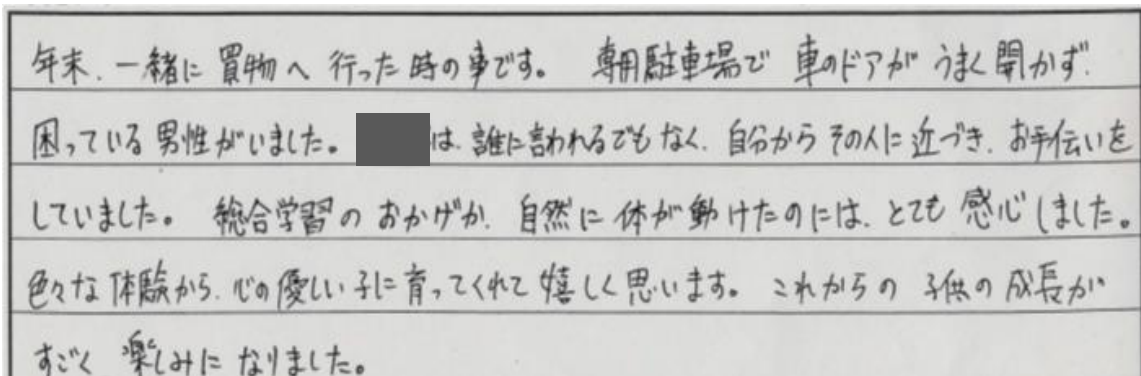 年末、一緒に買物へ行った時の事です。 専用駐車場で車のドアがうまく開かず、
困っている男性がいました。 は、誰に言われるでもなく、自分からその人に近づき、お手伝いを
していました。 総合学習のおかげか、自然に体が動けたのには、とても感心しました。
色々な体験から、心の優しい子に育ってくれて嬉しく思います。 これからの子供の成長が
すごく楽しみになりました。